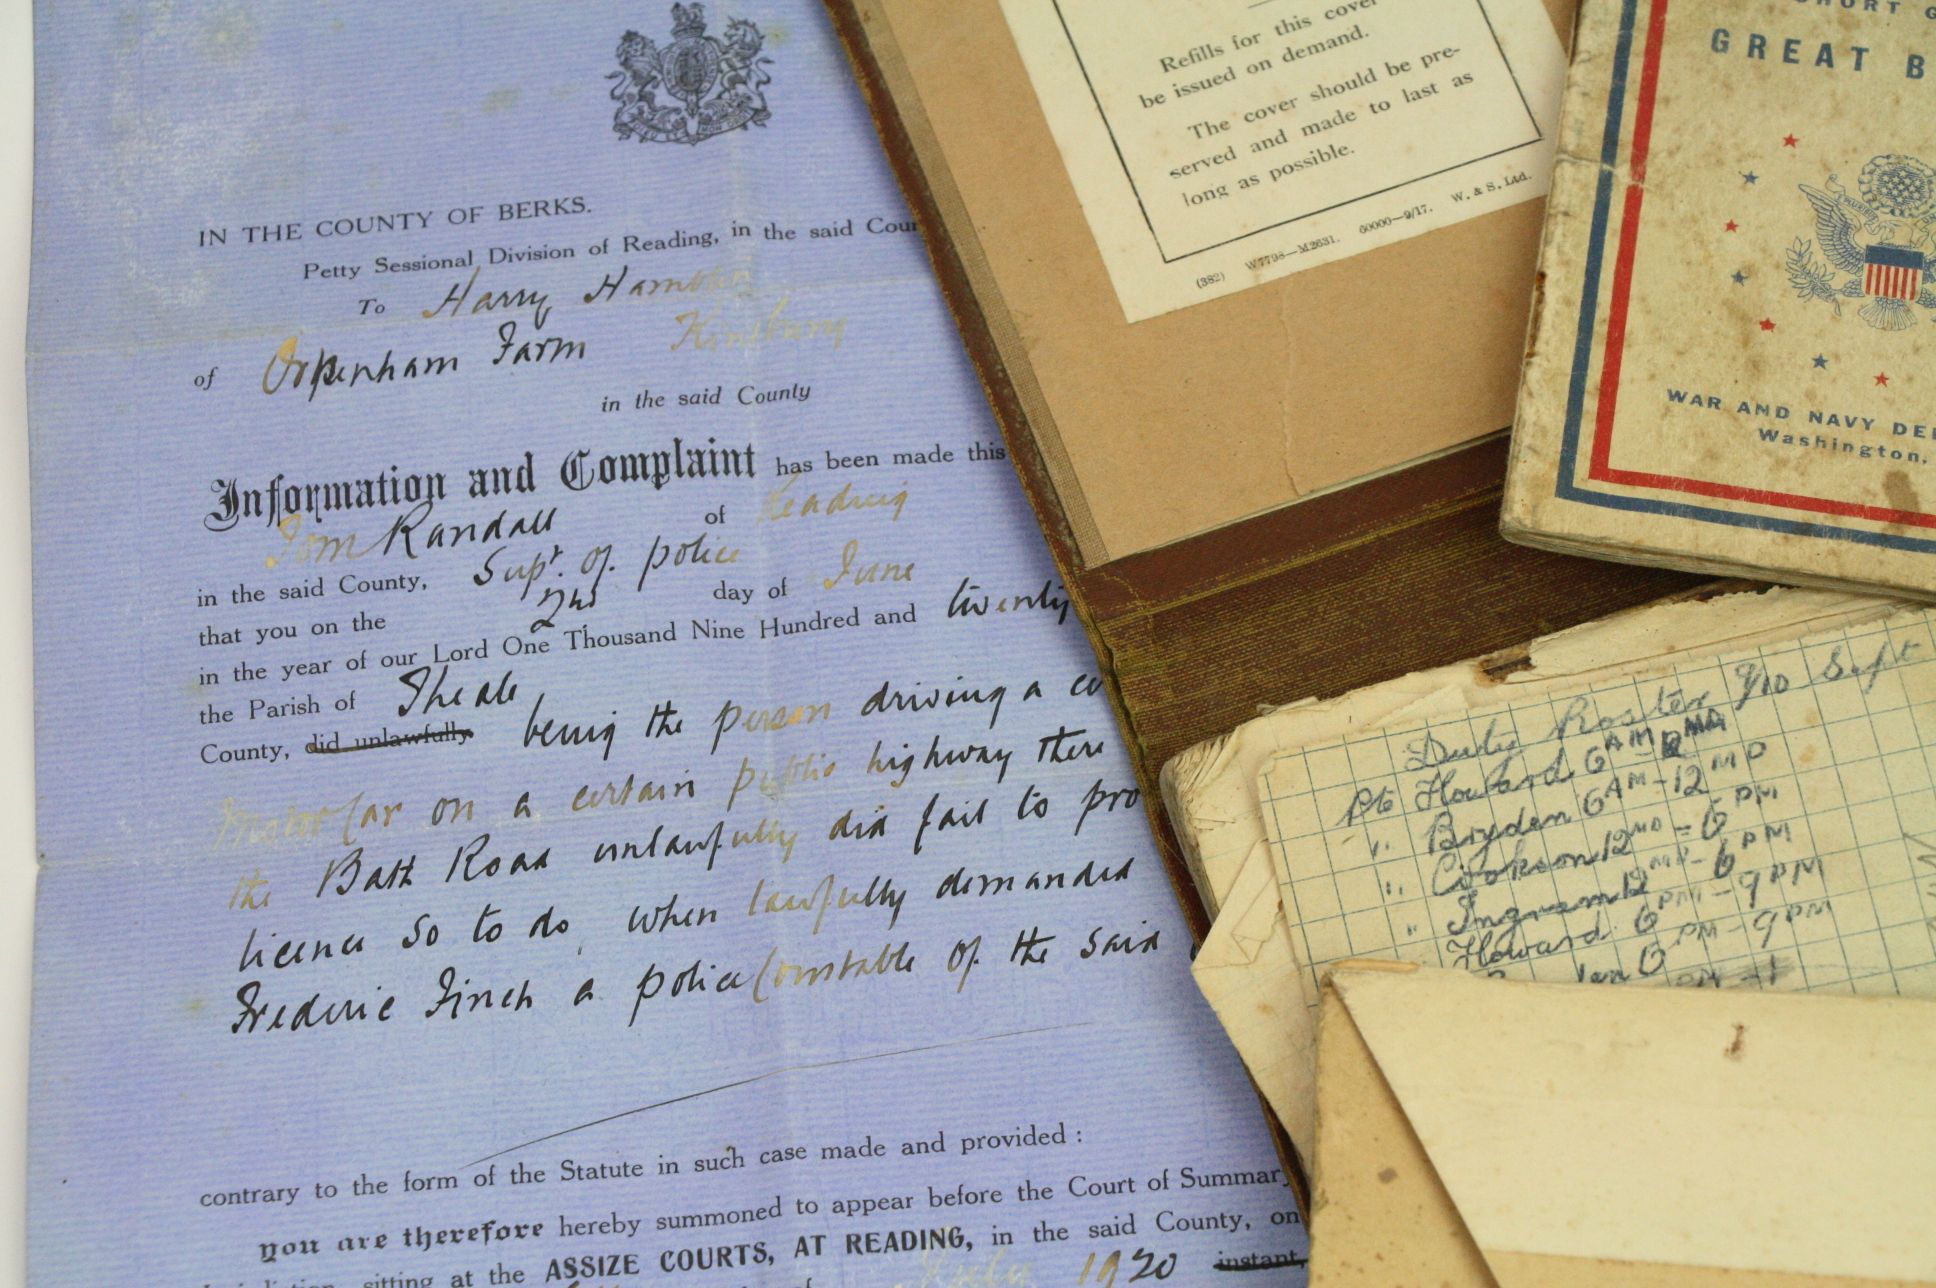 IN THE COUNTY OF BERKS.
Petty Sessional Division of Reading, in the said Cour
To Harry
of Orpenham Farm Kintbury
in the said County
Information and Complaint has been made this
Tom Randall of Reading
in the said County, Supt. of police
that you on the 2nd day of June
in the year of our Lord One Thousand Nine Hundred and twenty
the Parish of Theale
County, did unlawfully being the person driving a
Motor Car on a certain public highway there
the Bath Road unlawfully did fail to pro
licence so to do when lawfully demanded
Frederic Finch a police Constable of the said
contrary to the form of the Statute in such case made and provided :
you are therefore hereby summoned to appear before the Court of Summary
sitting at the ASSIZE COURTS, AT READING, in the said County, on
July 1920 instant,
Refills for this cover
be issued on demand.
The cover should be pre-
served and made to last as
long as possible.
(382) W7798—M2631. 60000—9/17. W. & S. Ltd.
SHORT G
GREAT B
WAR AND NAVY DE
Washington,
Duty Roster 9/10 Sept
Pte Howard 6AM-12MD
" Bryden 6AM-12MD
" Cookson 12MD-6PM
" Ingram 12MD-6PM
Howard 6PM-9PM
6PM-9PM